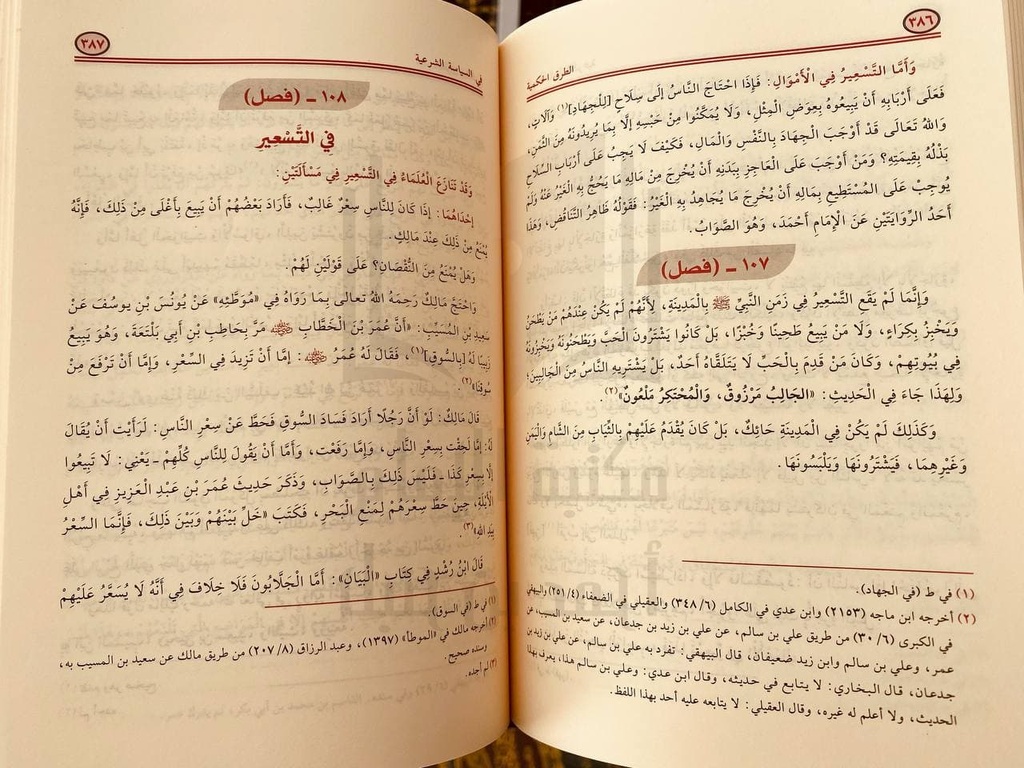 ٣٨٦
الطرق الحكمية
وَأَمَّا التَّسْعِيرُ فِي الْأَمْوَالِ: فَإِذَا احْتَاجَ النَّاسُ إِلَى سِلَاحِ [لِلْجِهَادِ](١) وَآلَاتٍ،
فَعَلَى أَرْبَابِهِ أَنْ يَبِيعُوهُ بِعِوَضِ الْمِثْلِ، وَلَا يُمَكَّنُوا مِنْ حَبْسِهِ إِلَّا بِمَا يُرِيدُونَهُ مِنَ الثَّمَنِ،
وَاللهُ تَعَالَى قَدْ أَوْجَبَ الْجِهَادَ بِالنَّفْسِ وَالْمَالِ، فَكَيْفَ لَا يَجِبُ عَلَى أَرْبَابِ السِّلَاحِ
بَذْلُهُ بِقِيمَتِهِ؟ وَمَنْ أَوْجَبَ عَلَى الْعَاجِزِ بِبَدَنِهِ أَنْ يُخْرِجَ مِنْ مَالِهِ مَا يَحُجُّ بِهِ الْغَيْرُ عَنْهُ وَلَمْ
يُوجِبْ عَلَى الْمُسْتَطِيعِ بِمَالِهِ أَنْ يُخْرِجَ مَا يُجَاهِدُ بِهِ الْغَيْرُ: فَقَوْلُهُ ظَاهِرُ التَّنَاقُضِ، وَهَذَا
أَحَدُ الرِّوَايَتَيْنِ عَنِ الْإِمَامِ أَحْمَدَ، وَهُوَ الصَّوَابُ.
١٠٧ - (فصل)
وَإِنَّمَا لَمْ يَقَعِ التَّسْعِيرُ فِي زَمَنِ النَّبِيِّ ﷺ بِالْمَدِينَةِ، لِأَنَّهُمْ لَمْ يَكُنْ عِنْدَهُمْ مَنْ يَطْحَنُ
وَيَخْبِزُ بِكِرَاءٍ، وَلَا مَنْ يَبِيعُ طَحِينًا وَخُبْزًا، بَلْ كَانُوا يَشْتَرُونَ الْحَبَّ وَيَطْحَنُونَهُ وَيَخْبِزُونَهُ
فِي بُيُوتِهِمْ، وَكَانَ مَنْ قَدِمَ بِالْحَبِّ لَا يَتَلَقَّاهُ أَحَدٌ، بَلْ يَشْتَرِيهِ النَّاسُ مِنَ الْجَالِبِينَ؛
وَلِهَذَا جَاءَ فِي الْحَدِيثِ: «الْجَالِبُ مَرْزُوقٌ، وَالْمُحْتَكِرُ مَلْعُونٌ»(٢).
وَكَذَلِكَ لَمْ يَكُنْ فِي الْمَدِينَةِ حَائِكٌ، بَلْ كَانَ يُقْدَمُ عَلَيْهِمْ بِالثِّيَابِ مِنَ الشَّامِ وَالْيَمَنِ
وَغَيْرِهِمَا، فَيَشْتَرُونَهَا وَيَلْبَسُونَهَا.
(١) في ط (في الجهاد).
(٢) أخرجه ابن ماجه (٢١٥٣) وابن عدي في الكامل (٦/ ٣٤٨) والعقيلي في الضعفاء (٤/ ٢٥١) والبيهقي
في الكبرى (٦/ ٣٠) من طريق علي بن سالم، عن علي بن زيد بن جدعان، عن سعيد بن المسيب، عن
عمر، وعلي بن سالم وابن زيد ضعيفان، قال البيهقي: تفرد به علي بن سالم، عن علي بن زيد بن
جدعان، قال البخاري: لا يتابع في حديثه، وقال ابن عدي: وعلي بن سالم هذا، يعرف بهذا
الحديث، ولا أعلم له غيره، وقال العقيلي: لا يتابعه عليه أحد بهذا اللفظ.
٣٨٧
في السياسة الشرعية
١٠٨ - (فصل)
فِي التَّسْعِيرِ
وَقَدْ تَنَازَعَ الْعُلَمَاءُ فِي التَّسْعِيرِ فِي مَسْأَلَتَيْنِ:
إِحْدَاهُمَا: إِذَا كَانَ لِلنَّاسِ سِعْرٌ غَالِبٌ، فَأَرَادَ بَعْضُهُمْ أَنْ يَبِيعَ بِأَعْلَى مِنْ ذَلِكَ، فَإِنَّهُ
يُمْنَعُ مِنْ ذَلِكَ عِنْدَ مَالِكٍ.
وَهَلْ يُمْنَعُ مِنَ النُّقْصَانِ؟ عَلَى قَوْلَيْنِ لَهُمْ.
وَاحْتَجَّ مَالِكٌ رَحِمَهُ اللهُ تعالى بِمَا رَوَاهُ فِي «مُوَطَّئِهِ» عَنْ يُونُسَ بْنِ يوسُفَ عَنْ
سَعِيدِ بْنِ الْمُسَيِّبِ: «أَنَّ عُمَرَ بْنَ الْخَطَّابِ ﵁ مَرَّ بِحَاطِبِ بْنِ أَبِي بَلْتَعَةَ، وَهُوَ يَبِيعُ
زَبِيبًا لَهُ [بِالسُّوقِ](١)، فَقَالَ لَهُ عُمَرُ ﵁: إِمَّا أَنْ تَزِيدَ فِي السِّعْرِ، وَإِمَّا أَنْ تَرْفَعَ مِنْ
سُوقِنَا»(٢).
قَالَ مَالِكٌ: لَوْ أَنَّ رَجُلًا أَرَادَ فَسَادَ السُّوقِ فَحَطَّ عَنْ سِعْرِ النَّاسِ: لَرَأَيْتُ أَنْ يُقَالَ
لَهُ: إِمَّا لَحِقْتَ بِسِعْرِ النَّاسِ، وَإِمَّا رَفَعْتَ، وَأَمَّا أَنْ يَقُولَ لِلنَّاسِ كُلِّهِمْ - يَعْنِي: لَا تَبِيعُوا
إِلَّا بِسِعْرِ كَذَا - فَلَيْسَ ذَلِكَ بِالصَّوَابِ، وَذَكَرَ حَدِيثَ عُمَرَ بْنِ عَبْدِ الْعَزِيزِ فِي أَهْلِ
الْأُبُلَّةِ، حِينَ حَطَّ سِعْرَهُمْ لِمَنْعِ الْبَحْرِ، فَكَتَبَ «خَلِّ بَيْنَهُمْ وَبَيْنَ ذَلِكَ، فَإِنَّمَا السِّعْرُ
بِيَدِ اللهِ»(٣).
قَالَ ابْنُ رُشْدٍ فِي كِتَابِ «الْبَيَانِ»: أَمَّا الْجَلَّابُونَ فَلَا خِلَافَ فِي أَنَّهُ لَا يُسَعَّرُ عَلَيْهِمْ
(١) في ط (في السوق).
(٢) أخرجه مالك في «الموطأ» (١٣٩٧)، وعبد الرزاق (٨/ ٢٠٧) من طريق مالك عن سعيد بن المسيب به،
وسنده صحيح.
(٣) لم أجده.